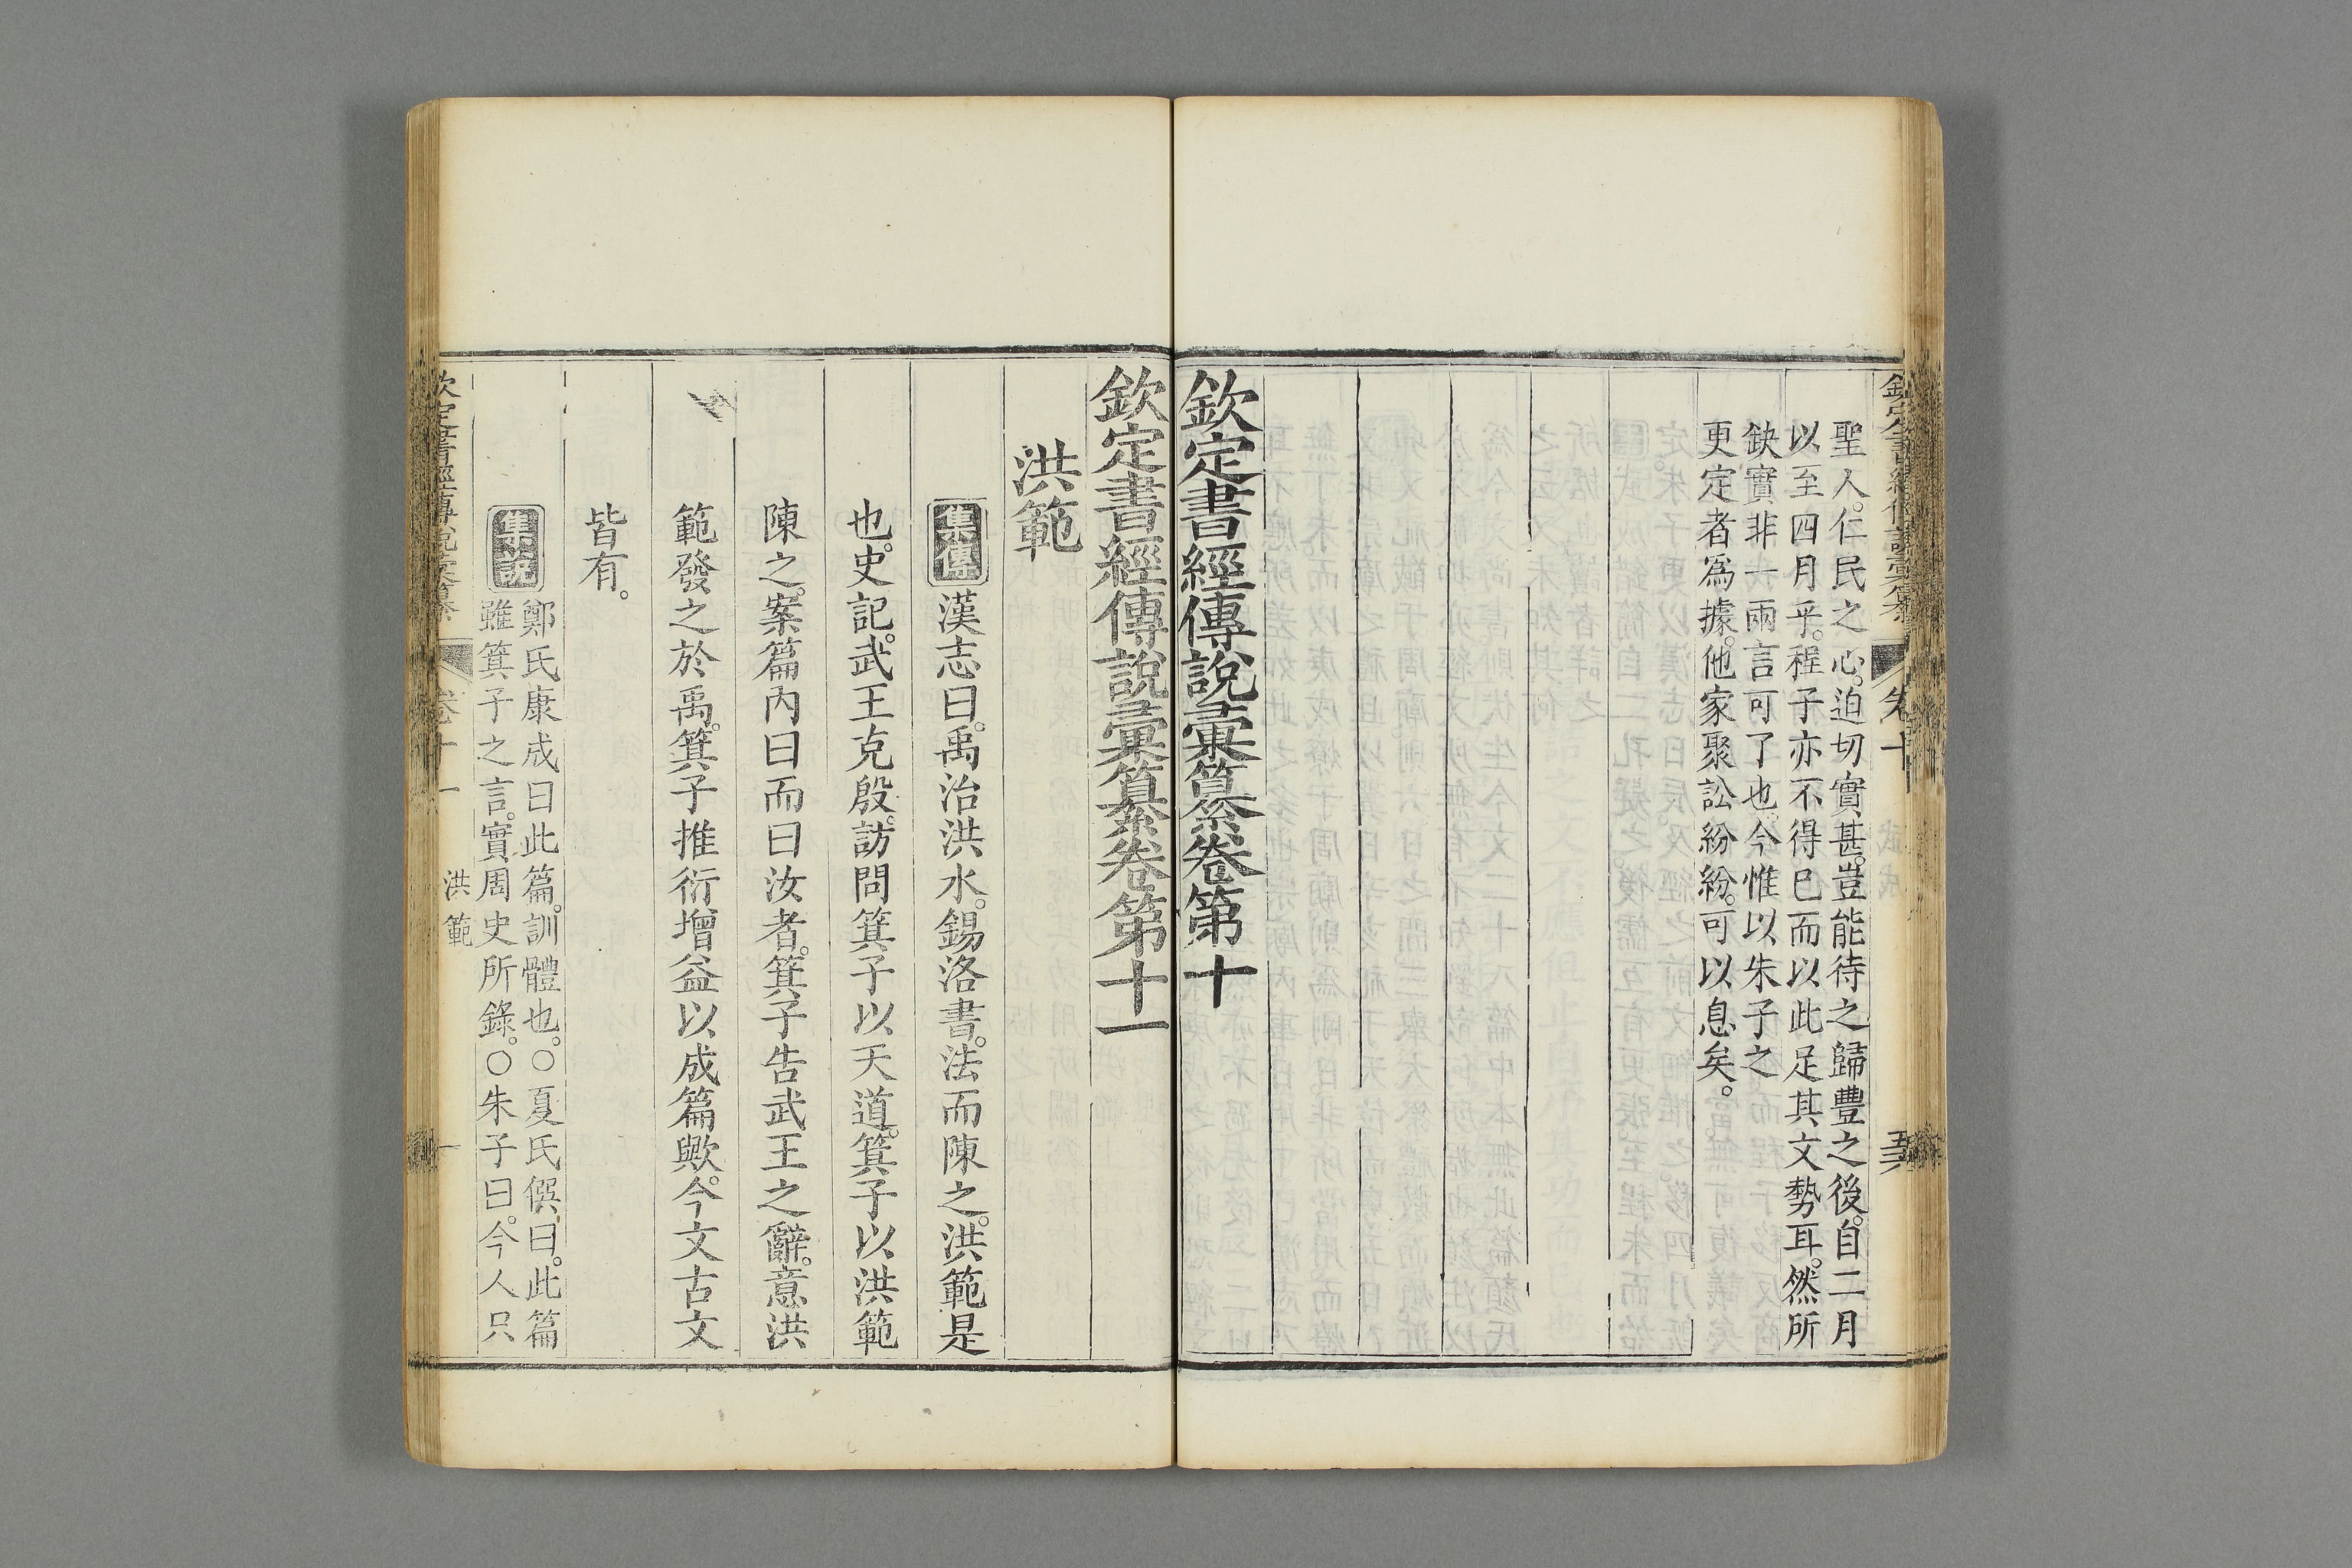 聖人。仁民之心。迫切實甚。豈能待之歸豐之後。自二月
以至四月乎。程子亦不得已而以此足其文勢耳。然所
缺實非一兩言可了也。今惟以朱子之
更定者爲據。他家聚訟紛紛。可以息矣。
欽定書經傳說彙纂卷第十
欽定書經傳說彙纂卷第十一
洪範
集傳 漢志曰。禹治洪水。錫洛書。法而陳之。洪範是
也。史記。武王克殷。訪問箕子以天道。箕子以洪範
陳之。案篇內曰而曰汝者。箕子告武王之辭。意洪
範發之於禹。箕子推衍增益以成篇歟。今文古文
皆有。
集說 鄭氏康成曰此篇。訓體也。○夏氏僎曰。此篇
雖箕子之言。實周史所錄。○朱子曰。今人只
欽定書經傳說彙纂 卷十一 洪範 一